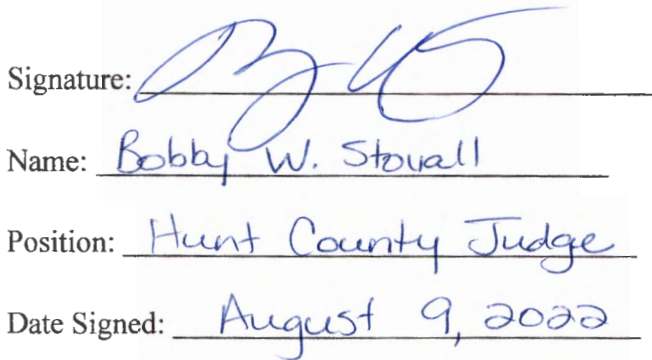 Signature:
Name: Bobby W. Stovall
Position: Hunt County Judge
Date Signed: August 9, 2022